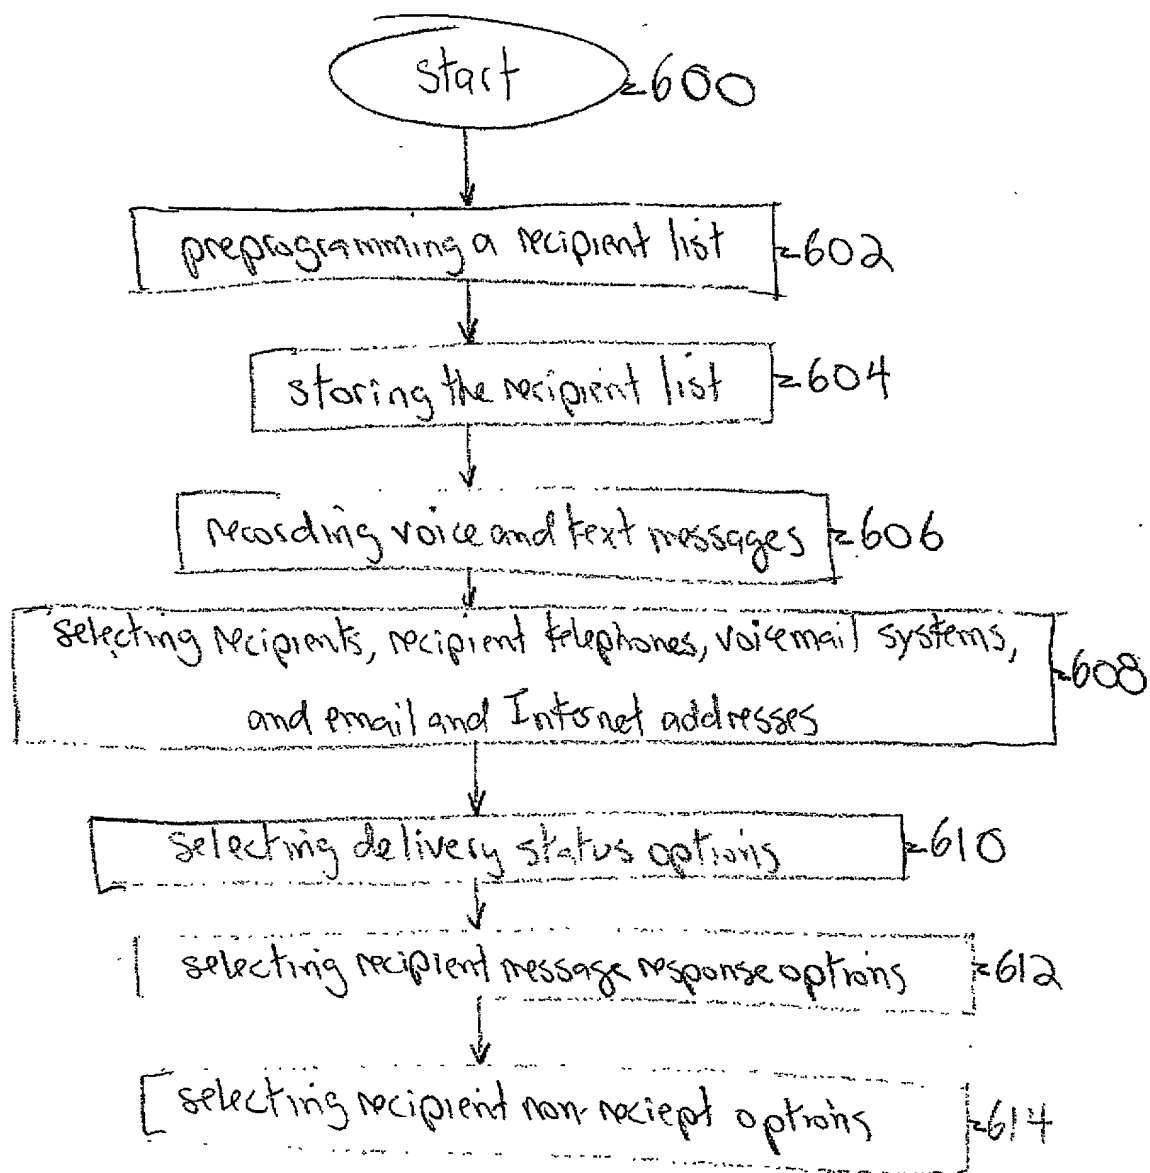 start 600
preprogramming a recipient list 602
storing the recipient list 604
recording voice and text messages 606
selecting recipients, recipient telephones, voicemail systems,
and email and Internet addresses 608
selecting delivery status options 610
selecting recipient message response options 612
selecting recipient non-reciept options 614